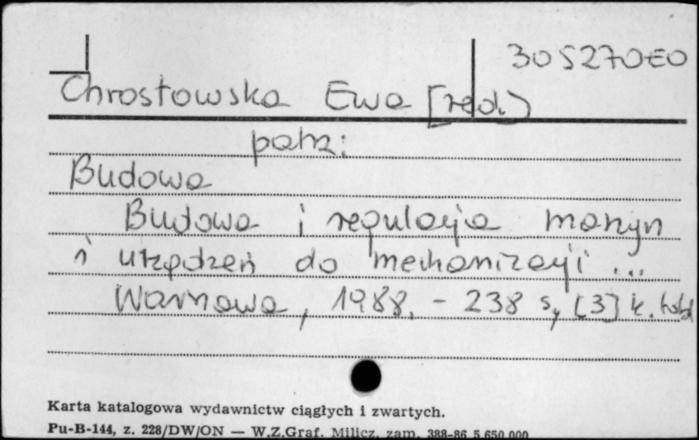 305270E0
Chrostowska Ewa [red.]
patrz:
Budowa
Budowa i regulacja maszyn
i urządzeń do mechanizacji ...
Warszawa, 1988. - 238 s, [3] k. tabl
Karta katalogowa wydawnictw ciągłych i zwartych.
Pu-B-144, z. 228/DW/ON — W.Z.Graf. Milicz, zam. 388-86 5.650.000